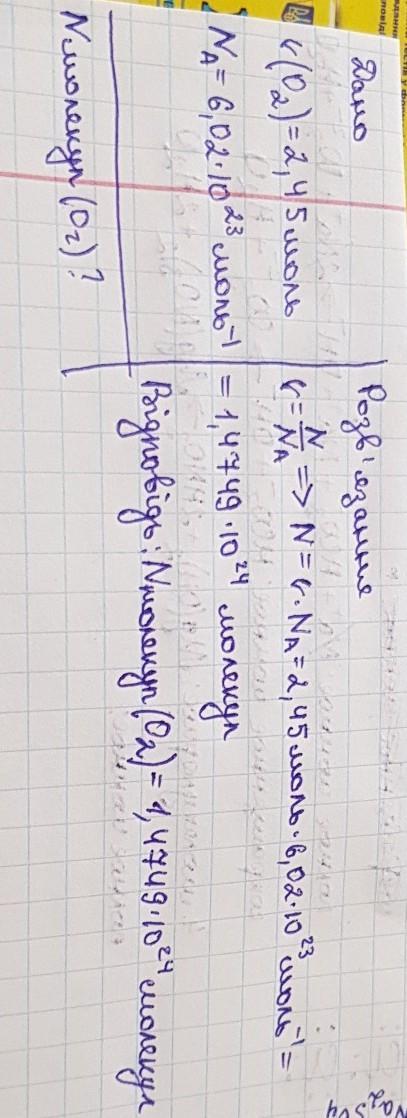 Дано
ν(O₂) = 2,45 моль
N_A = 6,02·10²³ моль⁻¹
N молекул (O₂)?
Розв'язання
ν = N/N_A => N = ν·N_A = 2,45 моль·6,02·10²³ моль⁻¹ =
= 1,4749·10²⁴ молекул
Відповідь: N молекул (O₂) = 1,4749·10²⁴ молекул